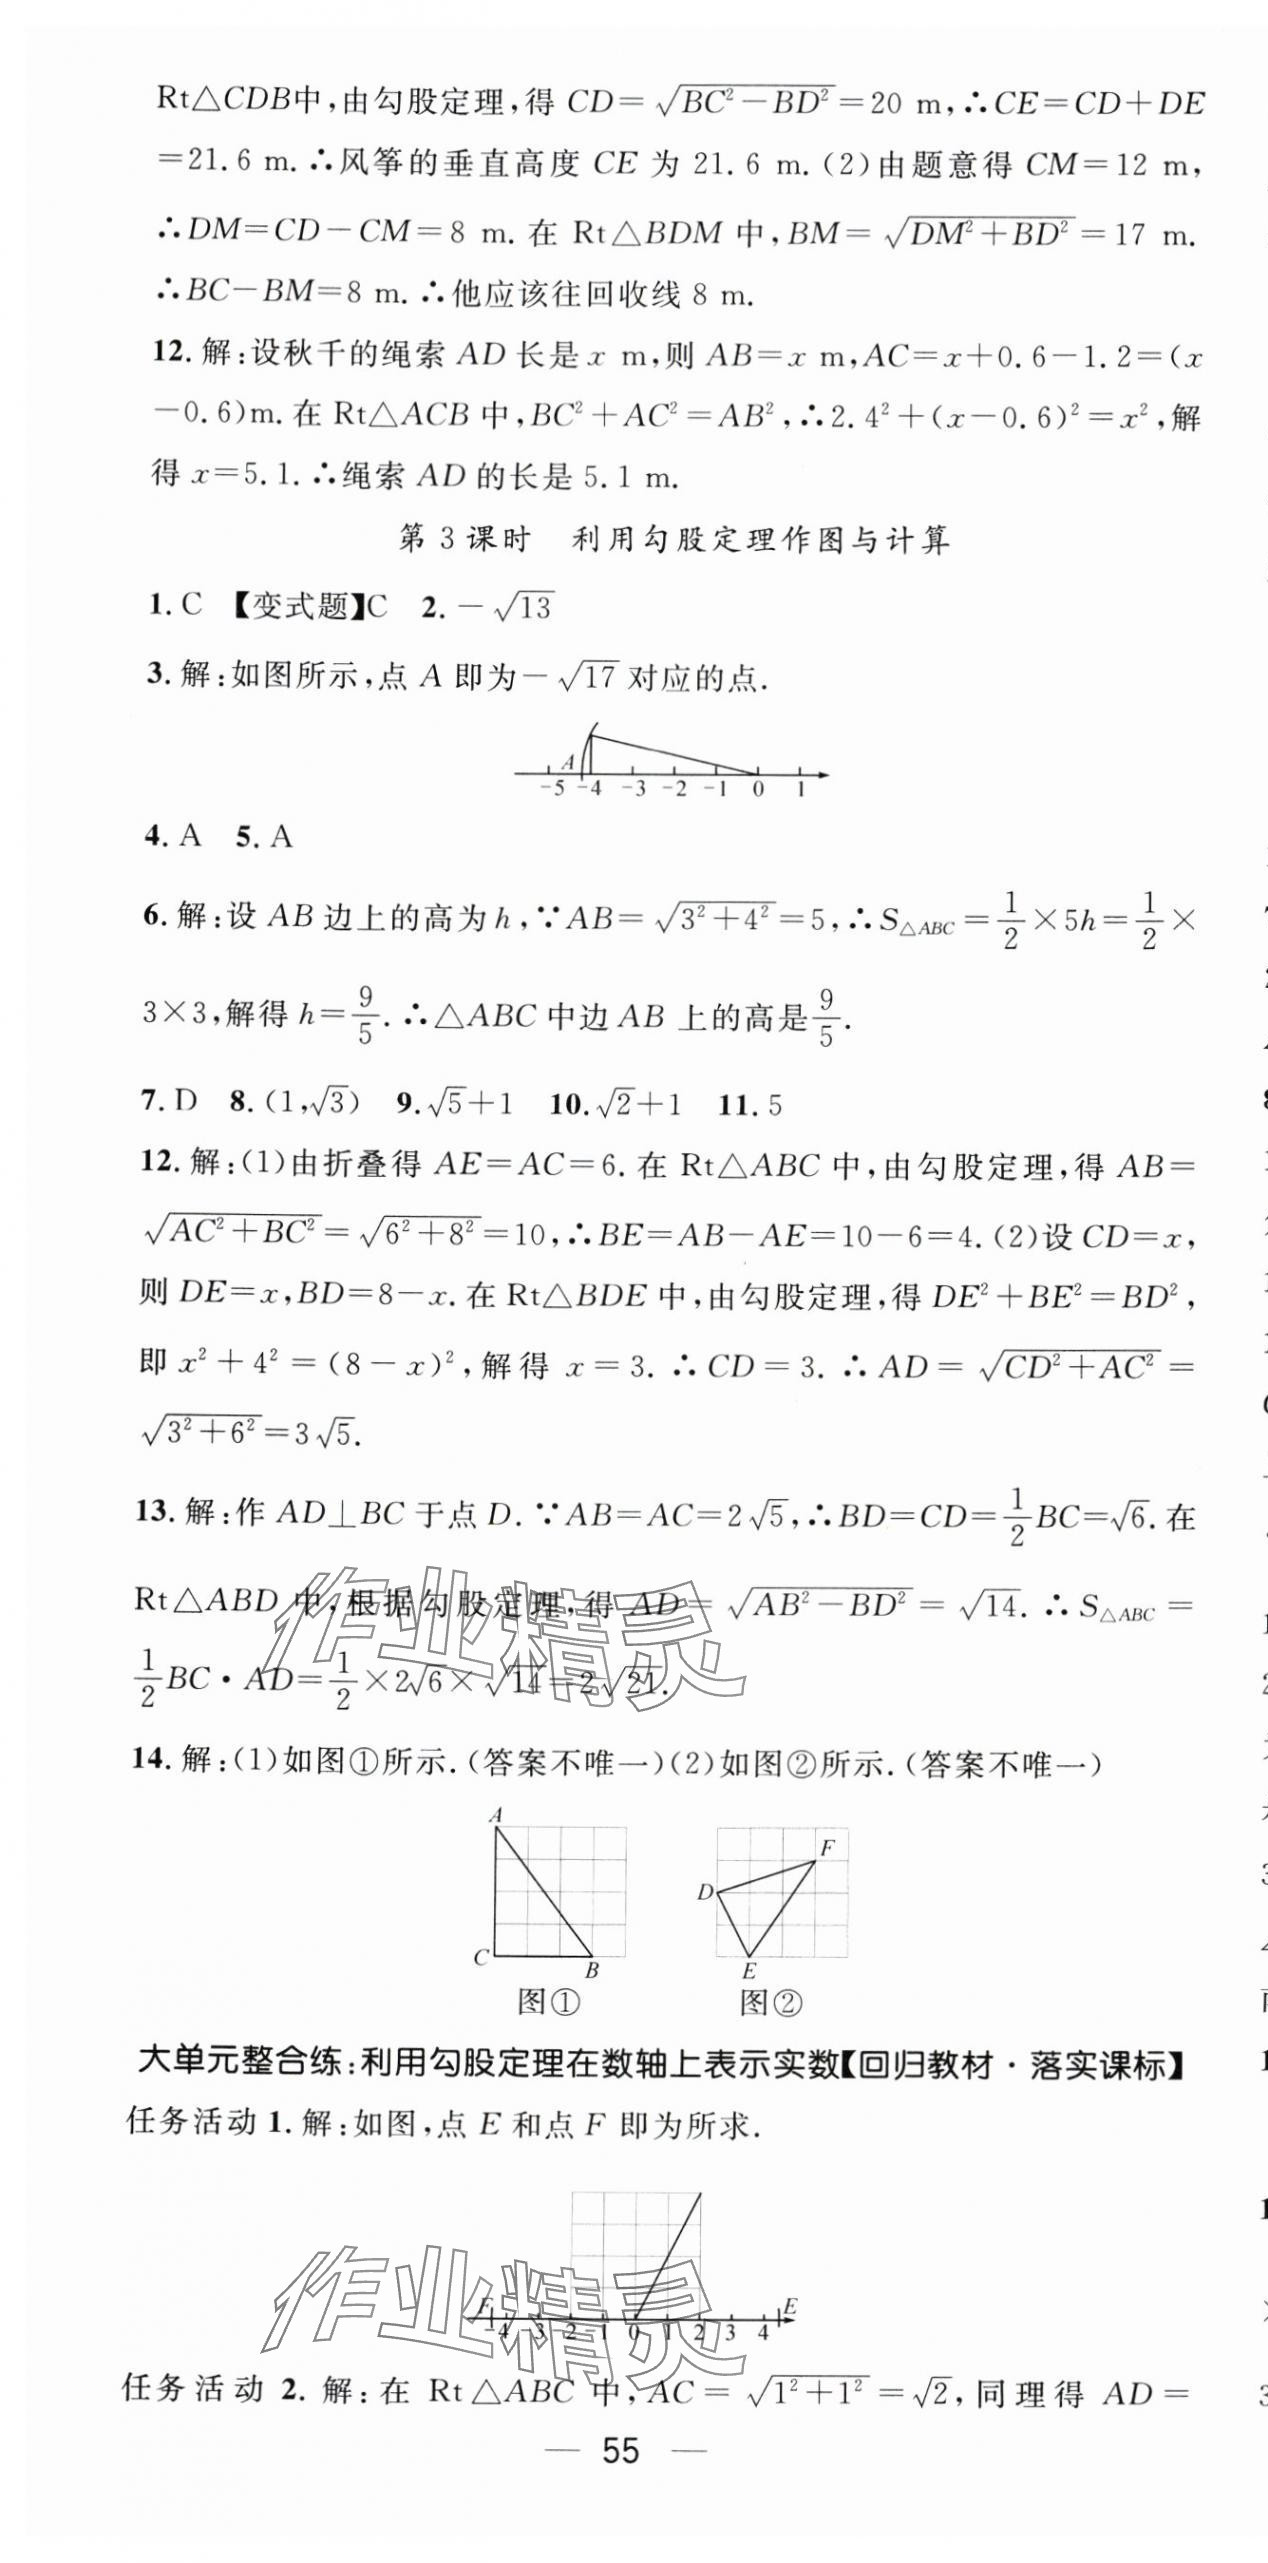 Rt△CDB中,由勾股定理,得 CD=√(BC²-BD²)=20 m,∴CE=CD+DE
=21.6 m.∴风筝的垂直高度 CE 为 21.6 m.(2)由题意得 CM=12 m,
∴DM=CD-CM=8 m.在 Rt△BDM 中,BM=√(DM²+BD²)=17 m.
∴BC-BM=8 m.∴他应该往回收线 8 m.
12.解:设秋千的绳索 AD 长是 x m,则 AB=x m,AC=x+0.6-1.2=(x
-0.6)m.在 Rt△ACB 中,BC²+AC²=AB²,∴2.4²+(x-0.6)²=x²,解
得 x=5.1.∴绳索 AD 的长是 5.1 m.
第 3 课时 利用勾股定理作图与计算
1.C 【变式题】C 2.-√13
3.解:如图所示,点 A 即为-√17 对应的点.
A
-5 -4 -3 -2 -1 0 1
4.A 5.A
6.解:设 AB 边上的高为 h,∵AB=√(3²+4²)=5,∴S△ABC=1/2×5h=1/2×
3×3,解得 h=9/5.∴△ABC 中边 AB 上的高是9/5.
7.D 8.(1,√3) 9.√5+1 10.√2+1 11.5
12.解:(1)由折叠得 AE=AC=6.在 Rt△ABC 中,由勾股定理,得 AB=
√(AC²+BC²)=√(6²+8²)=10,∴BE=AB-AE=10-6=4.(2)设 CD=x,
则 DE=x,BD=8-x.在 Rt△BDE 中,由勾股定理,得 DE²+BE²=BD²,
即 x²+4²=(8-x)²,解得 x=3.∴CD=3.∴AD=√(CD²+AC²)=
√(3²+6²)=3√5.
13.解:作 AD⊥BC 于点 D.∵AB=AC=2√5,∴BD=CD=1/2BC=√6.在
Rt△ABD 中,根据勾股定理,得 AD=√(AB²-BD²)=√14.∴S△ABC=
1/2BC·AD=1/2×2√6×√14=2√21.
作业精灵
14.解:(1)如图①所示.(答案不唯一)(2)如图②所示.(答案不唯一)
A F
D
C B E
图① 图②
大单元整合练:利用勾股定理在数轴上表示实数【回归教材·落实课标】
任务活动 1.解:如图,点 E 和点 F 即为所求.
作业精灵
F E
-4 -3 -2 -1 0 1 2 3 4
任务活动 2.解:在 Rt△ABC 中,AC=√(1²+1²)=√2,同理得 AD=
— 55 —